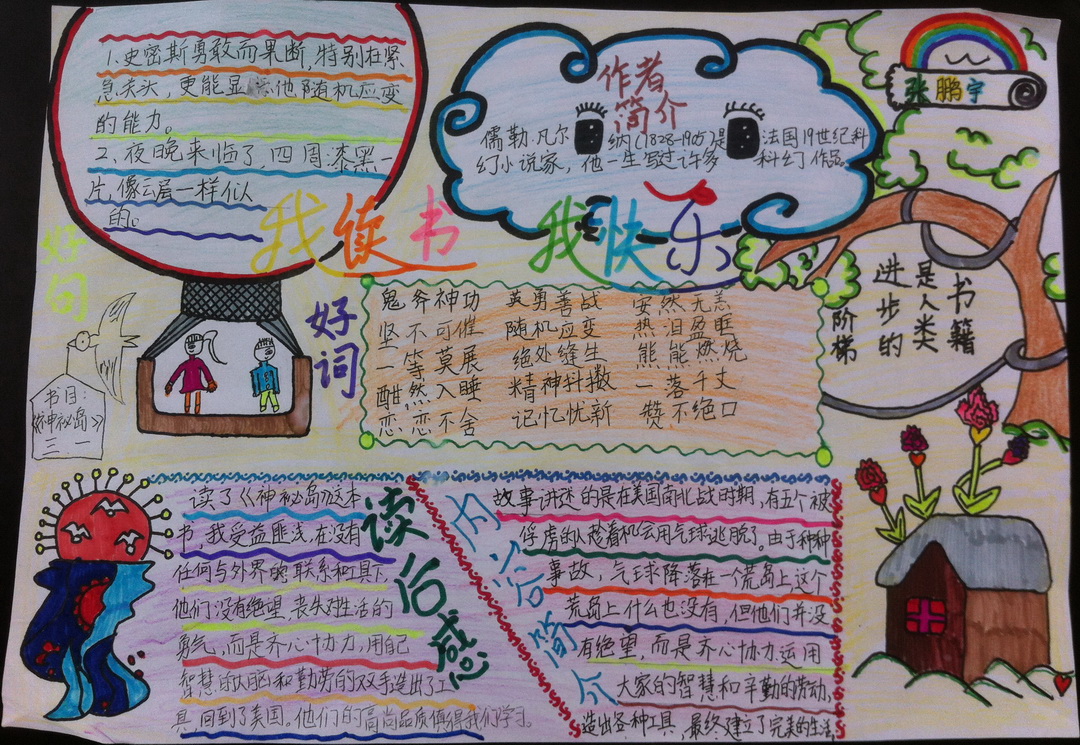 1.史密斯勇敢而果断,特别在紧
急关头,更能显 他随机应变
的能力。
2、夜晚来临了,四周漆黑一
片,像云层一样似人
的。
好句
作者
简介
儒勒.凡尔纳(1828-1905)是法国19世纪科
幻小说家,他一生写过许多科幻作品。
张鹏宇
我读书 我快乐
书籍
是人类
进步的
阶梯
好词
鬼斧神功 英勇善战 安然无恙
坚不可催 随机应变 热泪盈眶
一等莫展 绝处缝生 熊熊燃烧
酣然入睡 精神抖擞 一落千丈
恋恋不舍 记忆忧新 赞不绝口
书目:
《神秘岛》
三一
读后感
读了《神秘岛》这本
书,我受益匪浅,在没有
任何与外界的联系和工具下,
他们没有绝望,丧失对生活的
勇气,而是齐心协力,用自己
智慧的大脑和勤劳的双手造出了工
具,回到了美国。他们的高尚品质值得我们学习。
内容简介
故事讲述的是在美国南北战时期,有五个被
俘虏的人趁着机会用气球逃脱了。由于种种
事故,气球降落在一个荒岛上,这个
荒岛上什么也没有,但他们并没
有绝望,而是齐心协力,运用
大家的智慧和辛勤的劳动,
造出各种工具,最终建立了完美的生活,